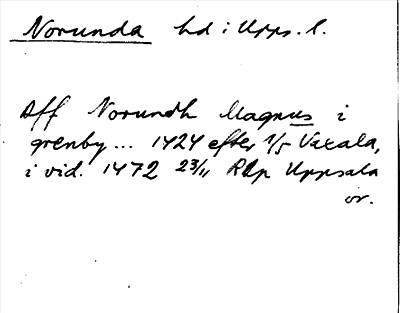 Norunda hd i Upps. l.
Aff Norundh Magnus i
grenby... 1424 efter 1/5 Vaxala,
i vid. 1472 23/11 RAp Uppsala
or.